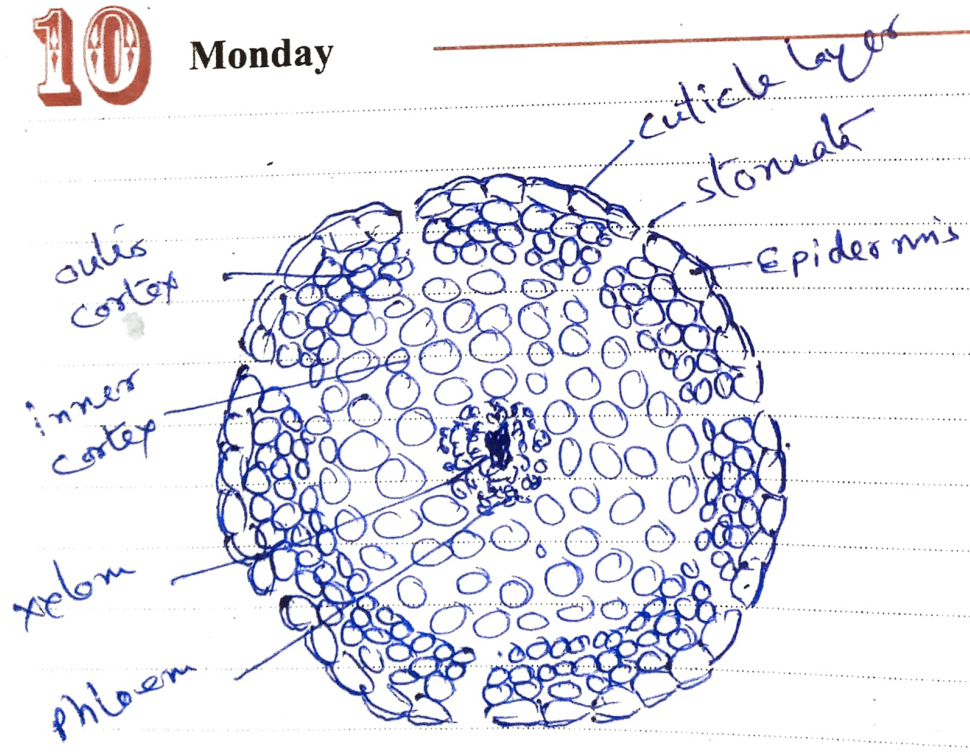 10 Monday
cuticle layer
stomata
Epidermis
outer
cortex
inner
cortex
xylem
phloem